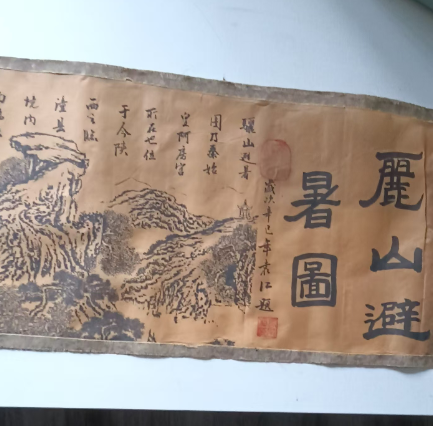 麗山避
暑圖
歲次辛巳年袁江題
驪山避暑
圖乃秦始
皇阿房宮
所在也位
于今陝
西之臨
潼县
境内